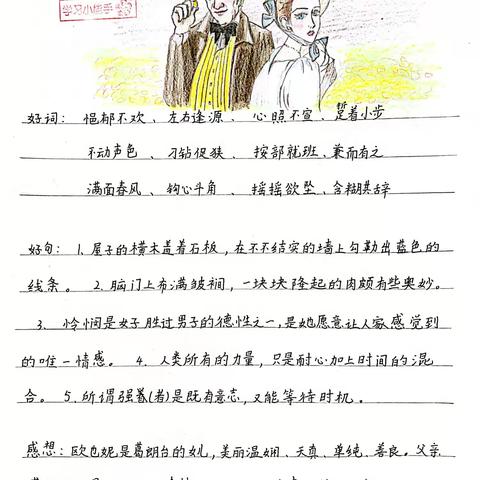 学习小能手
好词：悒郁不欢、左右逢源、心照不宣、踅着小步
不动声色、刁钻促狭、按部就班、兼而有之
满面春风、钩心斗角、摇摇欲坠、含糊其辞
好句：1.屋子的横木盖着石板，在不不结实的墙上勾勒出蓝色的
线条。2.脑门上布满皱裥，一块块隆起的肉颇有些奥妙。
3.怜悯是女子胜过男子的德性之一，是她愿意让人家感觉到
的唯一情感。4.人类所有的力量，只是耐心加上时间的混
合。5.所谓强者是既有意志，又能等待时机。
感想：欧也妮是葛朗台的女儿，美丽温娴、天真、单纯、善良。父亲